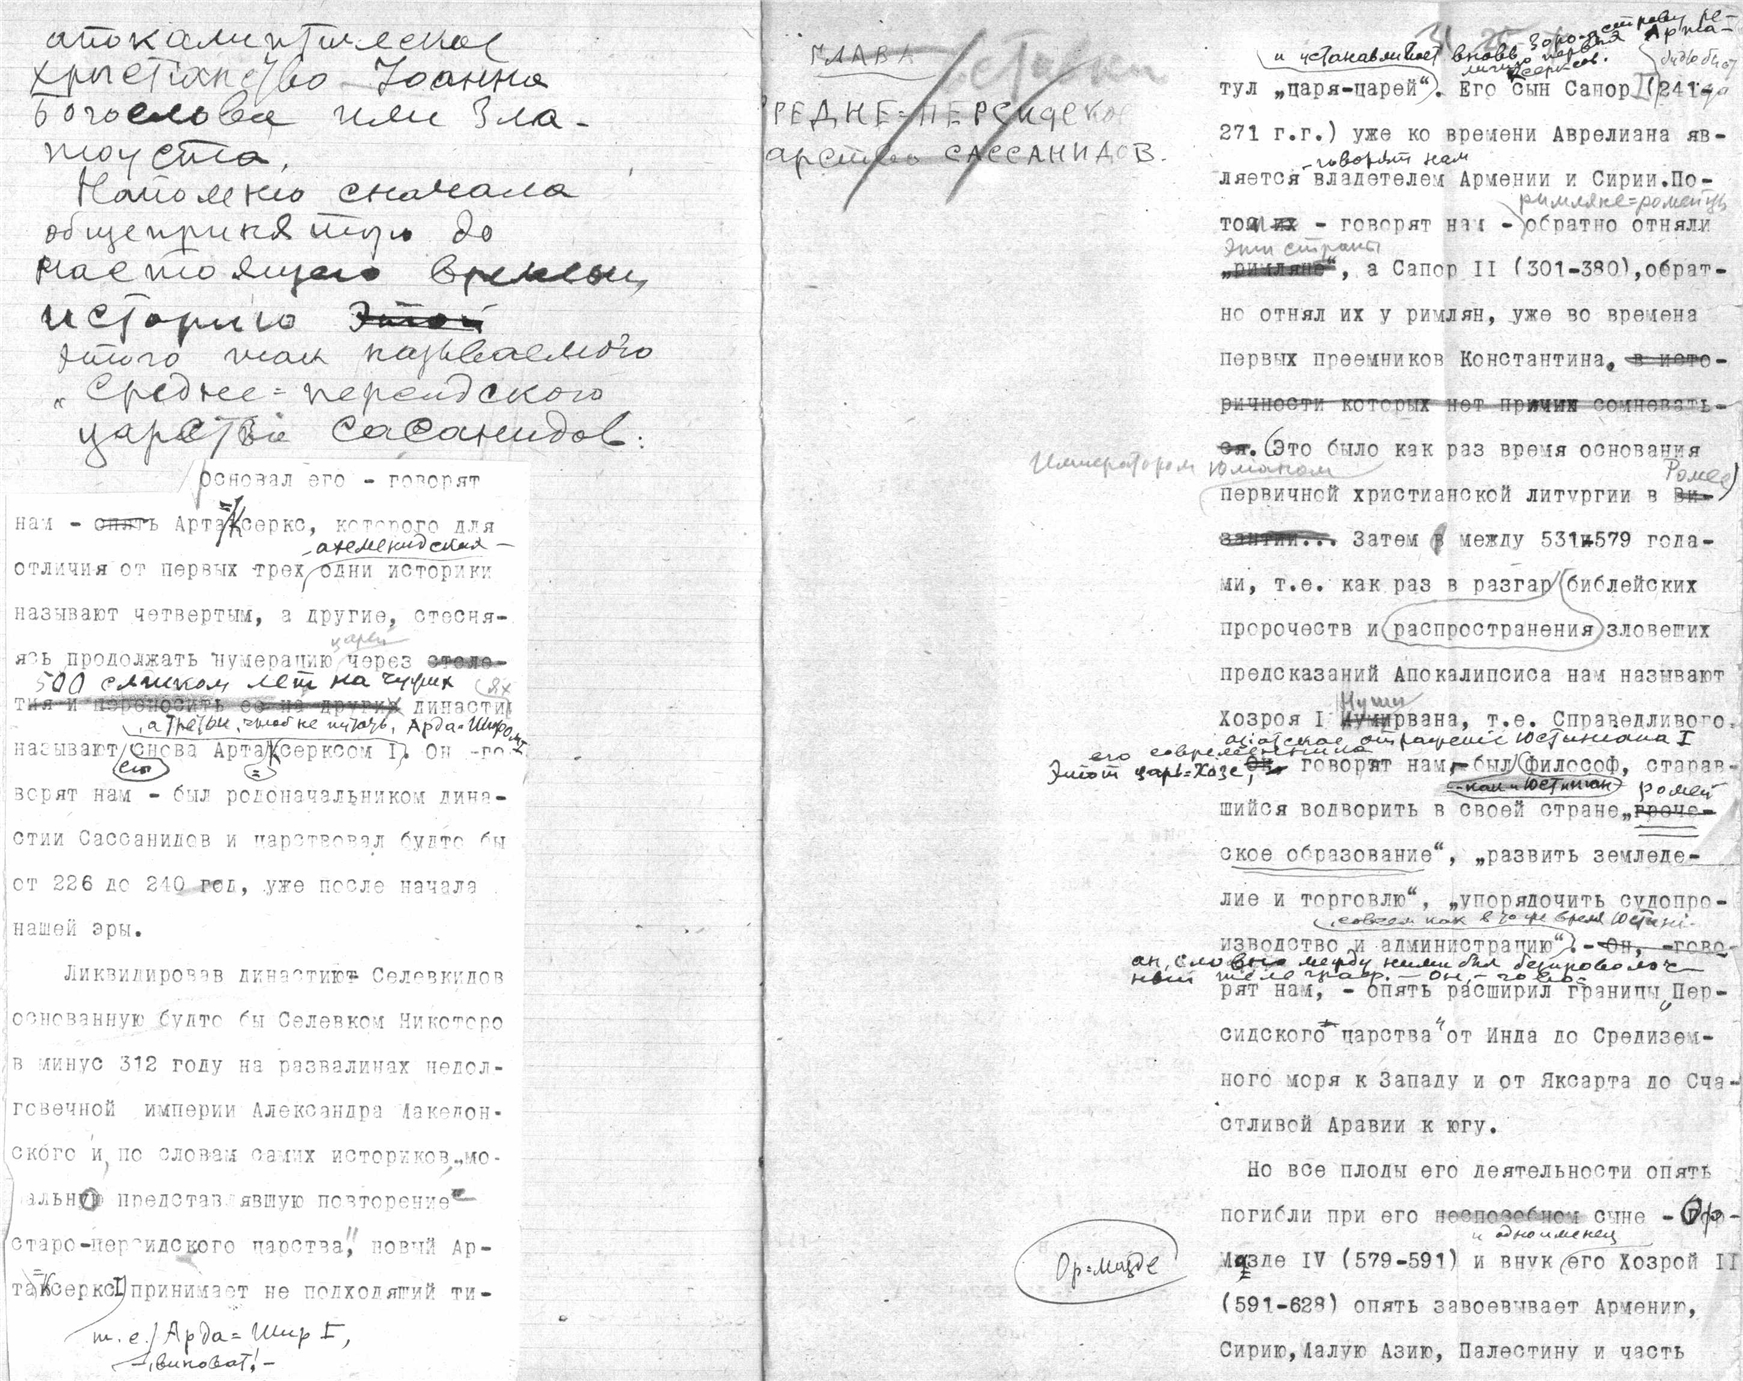 апокалиптическое
христианство Иоанна
Богослова или Зла-
тоуста.
Напомню сначала
общепринятую до
настоящего времени
историю этой
этого так называемого
"Средне=персидского
царства Сасанидов:
Основал его - говорят
нам - опять Арта=Ксеркс, которого для
-ахеменидских-
отличия от первых трех одни историки
называют четвертым, а другие, стесня-
царей
ясь продолжать нумерацию через столе-
500 слишком лет на чужих
тия и переносить ее на других династи
, а третьи, чтоб не путать, Арда=Широм I
называют снова Арта Ксерксом I. Он -го-
его
ворят нам - был родоначальником дина-
стии Сассанидов и царствовал будто бы
от 226 до 240 год, уже после начала
нашей эры.
Ликвидировав династию Селевкидов
основанную будто бы Селевком Никоторо
в минус 312 году на развалинах недол-
говечной империи Александра Македон-
ского и, по словам самих историков „мо-
альну представлявшую повторение"
старо-персидского царства", новый Ар-
та=Ксеркс I принимает не подходящий ти-
т.е. Арда=Шир I,
-, виноват! -
ГЛАВА
РЕДНЕ=ПЕРСИДСКОЕ
арство САССАНИДОВ.
и устанавливает вновь
тул „царя-царей“. Его сын Сапор I (241-
271 г.г.) уже ко времени Аврелиана яв-
-говорят нам
ляется владетелем Армении и Сирии.По-
римляне=ромейцы
том их - говорят нам - обратно отняли
эти страны
„римляне“, а Сапор II (301-380),обрат-
но отнял их у римлян, уже во времена
первых преемников Константина, в исто-
ричности которых нет причин сомневать-
ся. (Это было как раз время основания
Императором Юлианом
Ромее)
первичной христианской литургии в Ви-
зантии... Затем в между 531и579 года-
ми, т.е. как раз в разгар библейских
пророчеств и распространения зловещих
предсказаний Апокалипсиса нам называют
Нуши
Хозроя I Нуширвана, т.е. Справедливого.
азиатское отражение Юстиниана I
его современника
Этот царь=Хозе, Он говорят нам, - был философ, старав-
-как и Юстиниан- ромей
шийся водворить в своей стране „грече-
ское образование“, „развить земледе-
лие и торговлю“, „упорядочить судопро-
, совсем как в то же время Юстини-
изводство и администрацию“. - Он, -гово-
ан, словно между ними был беспроволоч-
ный телеграф. - Он, - гово-
рят нам, - опять расширил границы „Пер-
сидского царства" от Инда до Средизем-
ного моря к Западу и от Яксарта до Сча-
стливой Аравии к югу.
Но все плоды его деятельности опять
погибли при его неспособном сыне - Ор-
и одноименец
Ор=мазде
Мазде IV (579-591) и внук его Хозрой II
(591-628) опять завоевывает Армению,
Сирию, Малую Азию, Палестину и часть